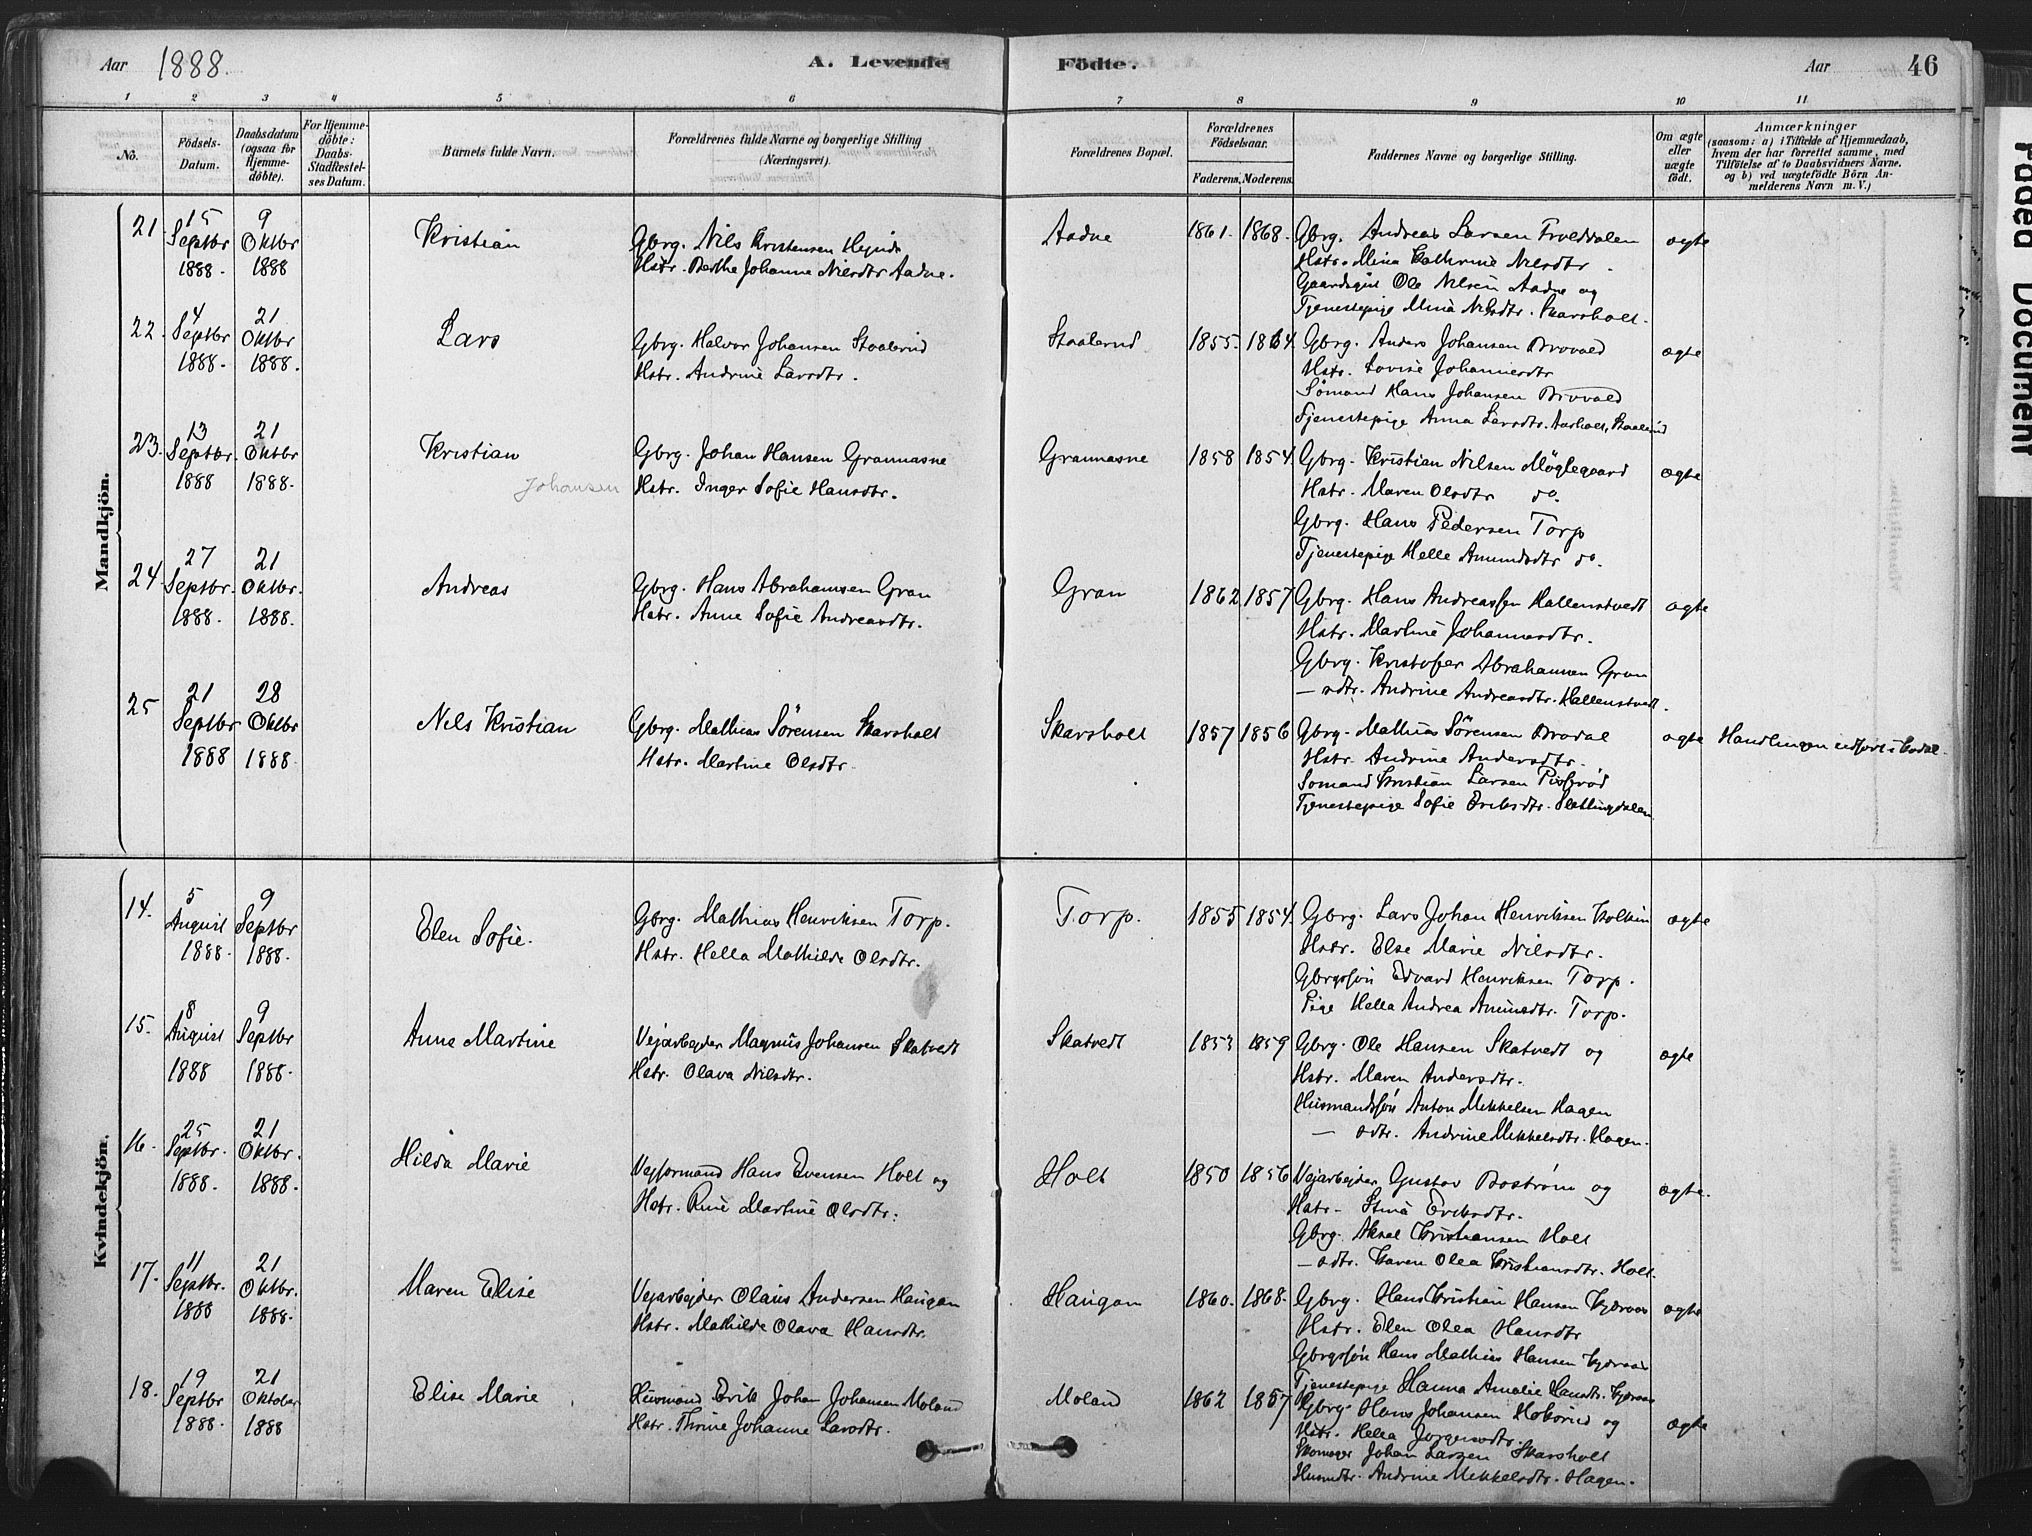 Aar 1888.
A. Levende Födte.
Aar
46
1 2 3 4 5 6 7 8 9 10 11
No.
Födsels-
Datum.
Daabsdatum
(ogsaa for
Hjemme-
döbte).
For Hjemme-
döbte:
Daabs-
Stadfæstel-
ses Datum.
Barnets fulde Navn.
Forældrenes fulde Navne og borgerlige Stilling
(Næringsvei).
Forældrenes Bopæl.
Forældrenes
Födselsaar.
Faderens. Moderens.
Faddernes Navne og borgerlige Stilling.
Om ægte
eller
uægte
födt.
Anmærkninger
(saasom: a) i Tilfælde af Hjemmedaab,
hvem der har forrettet samme, med
Tilföielse af to Daabsvidners Navne.
og b) ved uægtefödte Börn An-
melderens Navn m. V.)
Mandkjön.
21 15 Septbr 1888. 9 Oktbr 1888
Kristian
Gbrg. Nils Kristensen
Hstr. Berthe Johanne Nilsdtr Aadne.
Aadne
1861. 1868.
Gbrg. Andreas Larsen
Hstr. Mina Kathrine Nilsdtr.
Gaardsgut Ole Nilsen Aadne og
Tjenestepige Mina Nilsdtr. Skarsholt.
ægte
22. 4 Septbr 1888. 21 Oktbr 1888.
Lars
Gbrg. Halvor Johansen Staalerud
Hstr. Andrine Larsdtr.
Staalerud
1855. 1864.
Gbrg. Anders Johansen Brovald
Hstr. Lovise Johannesdtr
Sømand Hans Johansen Brovald
Tjenestepige Anna Larsdtr. Aasholt, Staalerud
ægte
23. 13 Septbr. 1888 21 Oktbr 1888.
Kristian
Johansen
Gbrg. Johan Hansen Grannasne
Hstr. Inger Sofie Hansdtr.
Grannasne
1858 1854.
Gbrg. Kristian Nilsen Møglegaard
Hstr. Maren Olsdtr do.
Gbrg. Hans Pedersen Torp
Tjenestepige Helle Amundsdtr do.
ægte
24. 27 Septbr. 1888. 21 Oktbr. 1888.
Andreas
Gbrg. Hans Abrahamsen Gran
Hstr. Anne Sofie Andreasdtr.
Gran
1862 1857
Gbrg. Hans Andreassen Hallenstvedt
Hstr. Martine Johannesdtr.
Gbrg. Kristofer Abrahamsen Gran
— sdtr. Andrine Andreasdtr. Hallenstvedt.
ægte
25 21 Septbr 1888 28 Oktbr 1888.
Nels Kristian
Gbrg. Mathias Sørensen Skarsholt
Hstr. Martine Olsdtr.
Skarsholt
1857 1856
Gbrg. Mathias Sørensen Brodal
Hstr. Andrine Andersdtr.
Sømand Kristian Larsen
Tjenestepige Sofie Eriksdtr. Slettingdalen
ægte
Handlingen udført i
Kvindekjön.
14. 5 August 1888. 9 Septbr 1888.
Elen Sofie.
Gbrg. Mathias Henriksen Torp.
Hstr. Hella Mathilde Olsdtr.
Torp.
1855 1854.
Gbrg. Lars Johan Henriksen
Hstr. Else Marie Nilsdtr.
Gbrgssøn Edvard Henriksen Torp.
Pige Hella Andrea Amundsdtr. Torp.
ægte
15. 8 August 1888 9 Septbr 1888.
Anne Martine
Vejarbejder Magnus Johansen Skatvedt
Hstr. Olava Nilsdtr.
Skatvedt
1853 1859
Gbrg. Ole Hansen Skatvedt og
Hstr. Maren Andersdtr.
Husmandssøn Anton Mikkelsen Hagen
— sdtr. Andrine Mikkelsdtr. Hagen.
ægte
16. 25 Septbr. 1888. 21 Oktbr. 1888.
Hilda Marie
Vejformand Hans Evensen Holt og
Hstr. Rine Martine Olsdtr.
Holt
1850 1856
Vejarbejder Gustav Bostrøm og
Hstr. Stina Eriksdtr.
Gbrg. Aksel Kristiansen Holt
— sdtr. Karen Olea Kristiansdtr. Holt.
ægte.
17. 11 Septbr. 1888 21 Oktbr. 1888.
Maren Elise
Vejarbejder Olaus Andersen Haugan
Hstr. Mathilde Olava Hansdtr.
Haugan
1860. 1868.
Gbrg. Hans Kristian Hansen Kjøraas
Hstr. Elen Olea Hansdtr
Gbrgssøn Hans Mathias Hansen Kjøraas
Tjenestepige Hanna Amalie Hansdtr. Kjøraas
ægte
18. 19 Septbr 1888. 21 Oktober 1888
Elise Marie
Husmand Erik Johan Johansen Moland
Hstr. Thrine Johanne Larsdtr.
Moland
1862 1857
Gbrg. Hans Johansen Hokerud og
Hstr. Hella Jørgensdtr.
Skomager Johan Larsen Skarsholt
Husmdtr. Andrine Mikkelsdtr. Hagen.
ægte
Faded Document